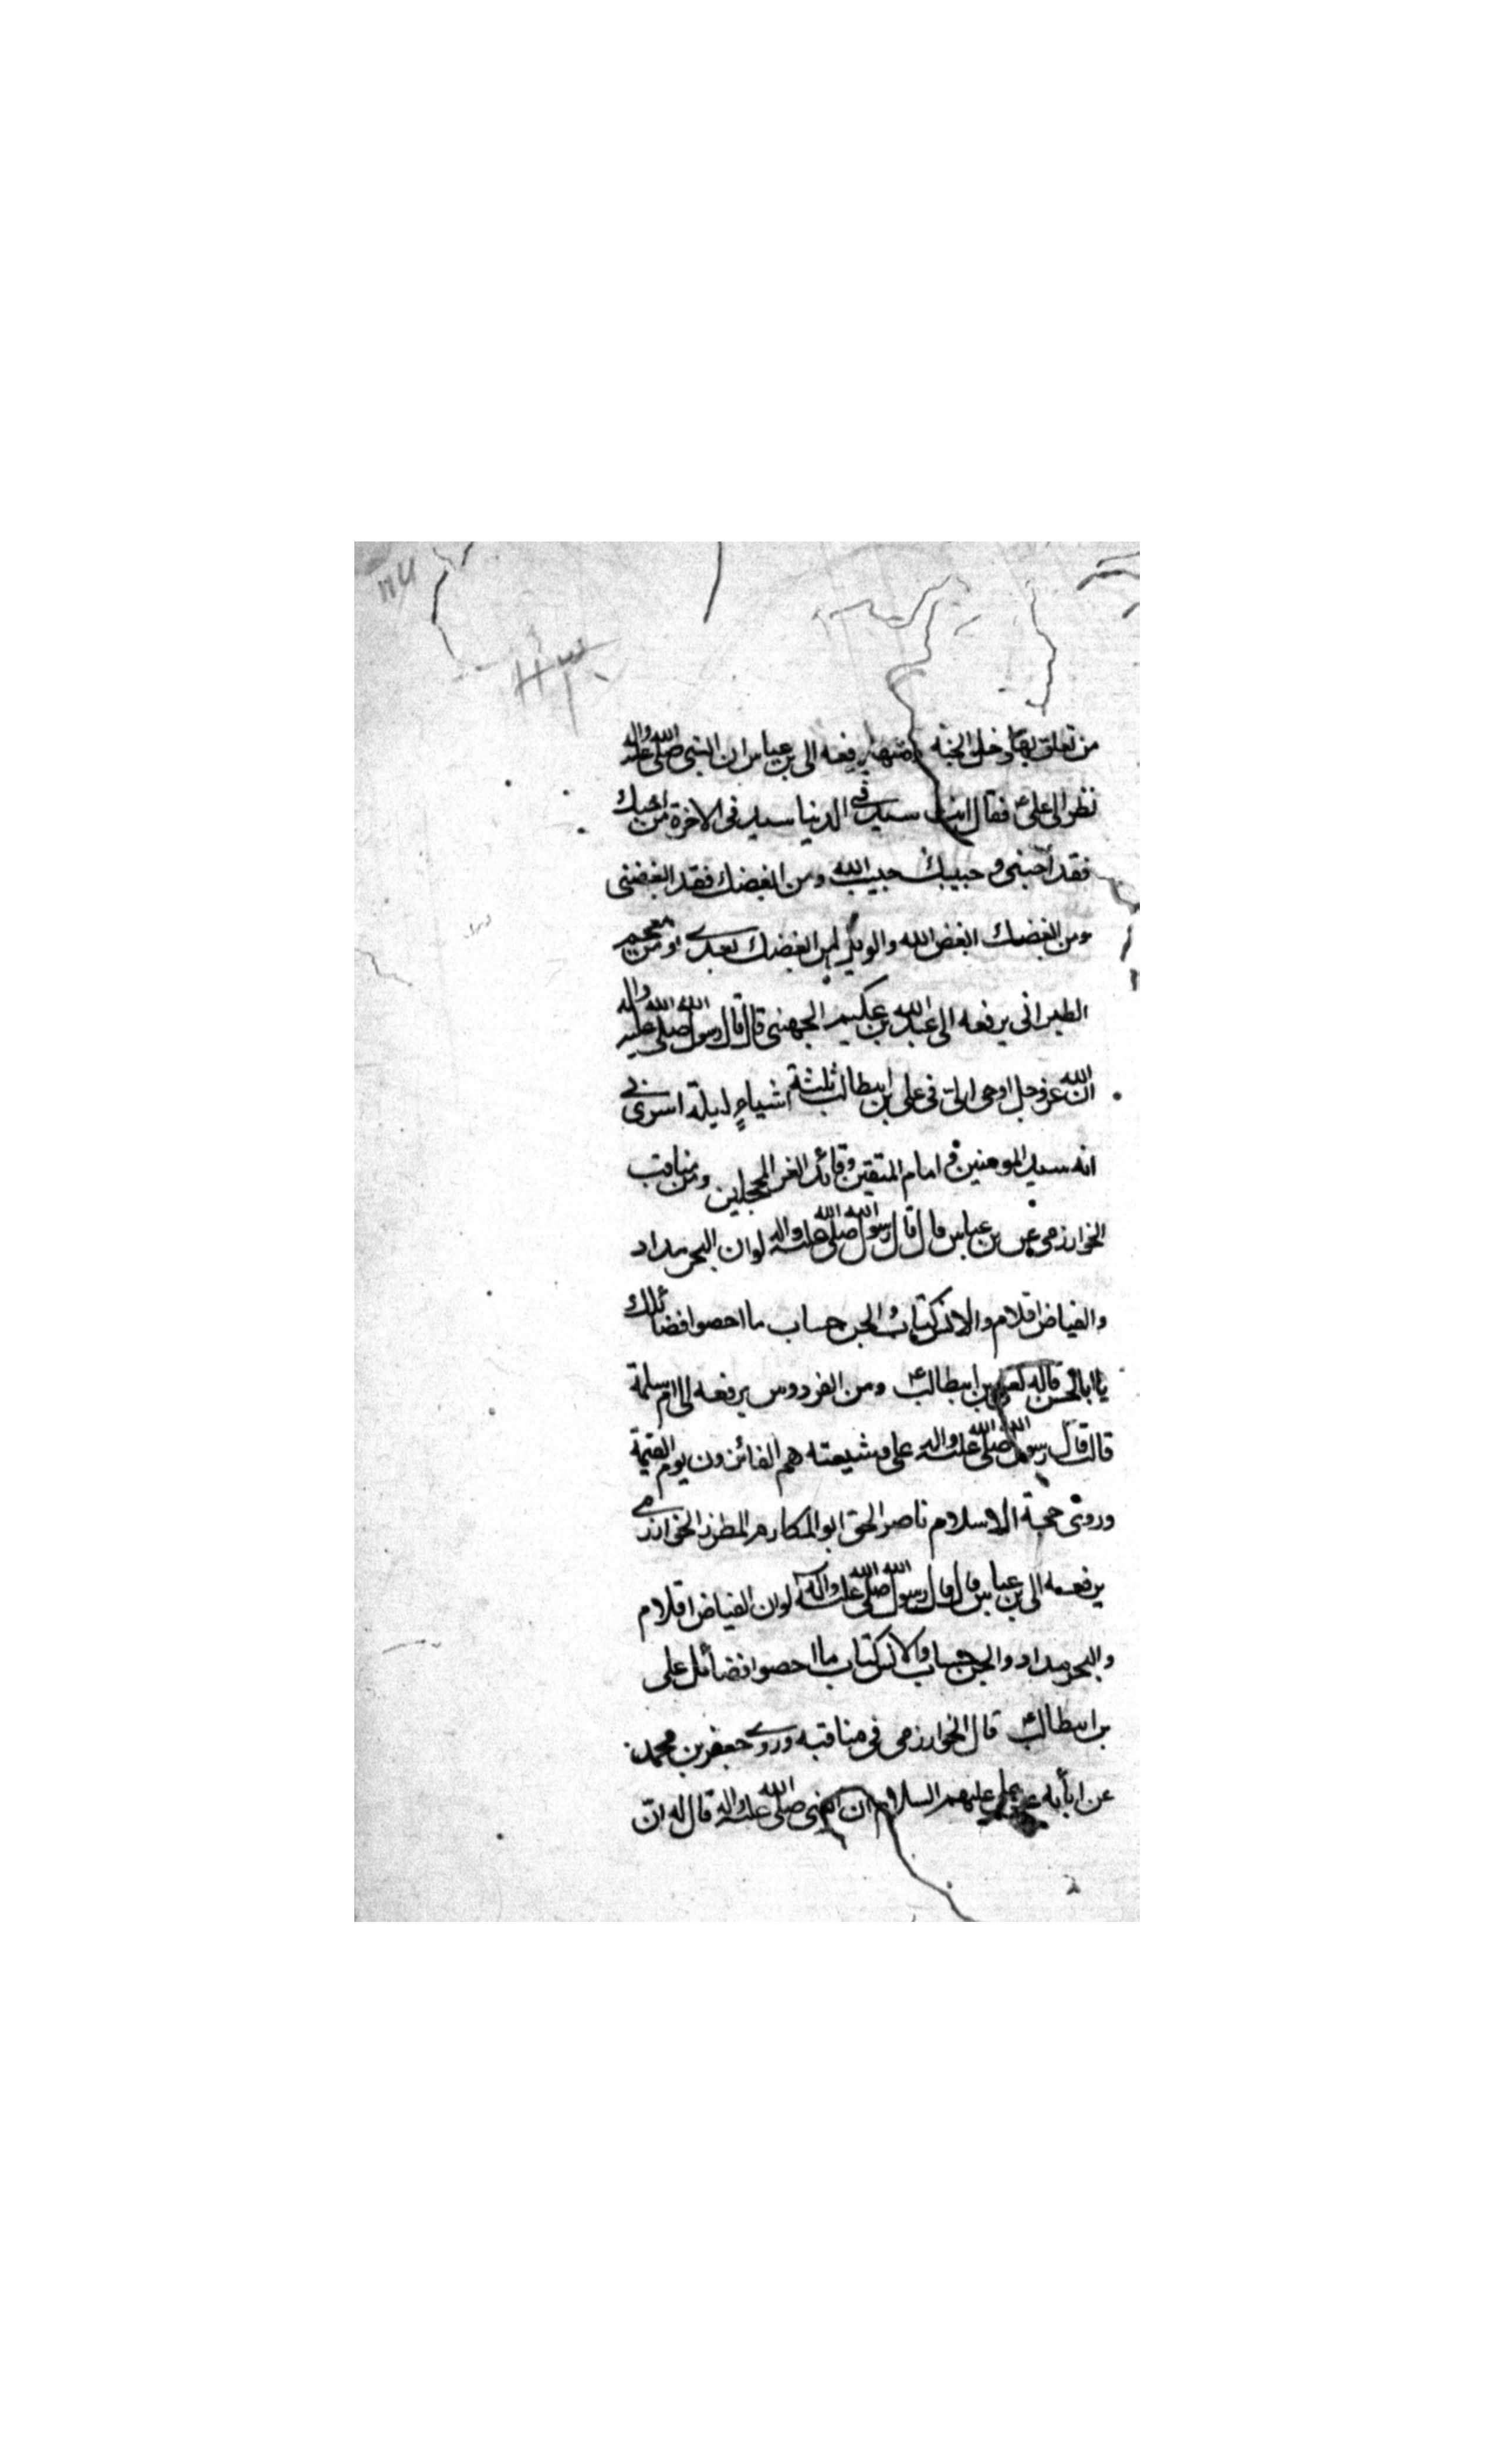 من تعلق بها دخل الجنة ومنها يرفعه الى بن عباس ان النبي صلى الله عليه واله
نظر الى علي ع فقال انت سيد في الدنيا سيد في الاخرة من احبك
فقد احبني و حبيبك حبيب الله ومن ابغضك فقد ابغضني
ومن ابغضك ابغض الله والويل لمن ابغضك بعدي ومن معجم
الطبراني يرفعه الى عبد الله بن عكيم الجهني قال قال رسول الله صلى الله عليه واله
ان الله عز وجل اوحى الي في علي بن ابيطالب ثلثة اشياء ليلة اسرى بي
انه سيد المومنين و امام المتقين وقائد الغر المحجلين ومن مناقب
الخوارزمي عن بن عباس قال قال رسول الله صلى الله عليه واله لو ان البحر مداد
والغياض اقلام والانس كتاب والجن حساب ما احصوا فضائلك
يا ابا الحسن قاله لعلي بن ابيطالب ع ومن الفردوس يرفعه الى ام سلمة
قالت قال رسول الله صلى الله عليه واله علي وشيعته هم الفائزون يوم القيمة
وروى حجة الاسلام ناصر الحق ابو المكارم المطرز الخوارزمي
يرفعه الى بن عباس قال قال رسول الله صلى الله عليه واله لو ان الغياض اقلام
والبحر مداد والجن حساب والانس كتاب ما احصوا فضائل علي
بن ابيطالب ع قال الخوارزمي في مناقبه وروى جعفر بن محمد
عن ابائه عن علي عليهم السلام ان النبي صلى الله عليه واله قال له ان